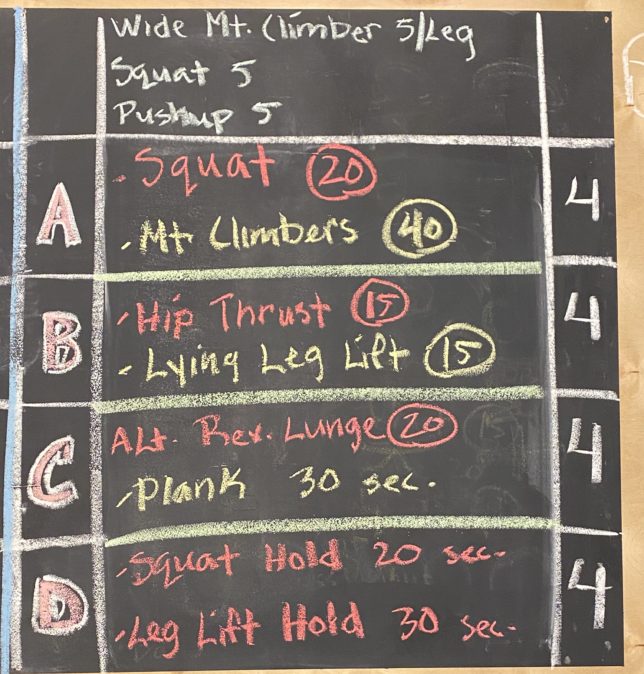 Wide Mt. Climber 5/Leg
Squat 5
Pushup 5
A
- Squat 20
4
- Mt Climbers 40
B
- Hip Thrust 15
4
- Lying Leg Lift 15
C
Alt. Rev. Lunge 20
4
- Plank 30 sec.
D
- Squat Hold 20 sec.
4
- Leg Lift Hold 30 sec.